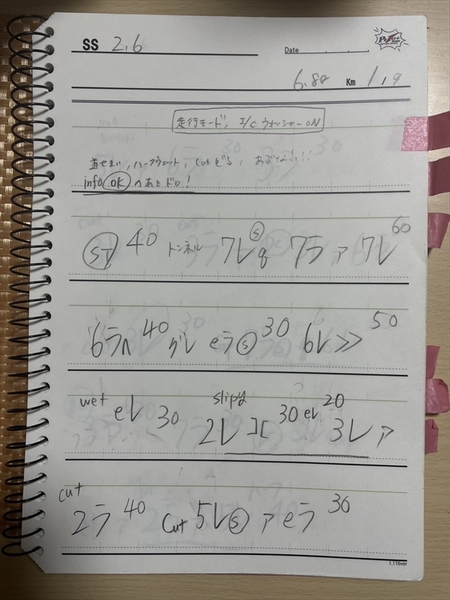 SS 2,6
Date
6.88 Km 1,19
走行モード, I/C ウォッシャーON
道せまい, ハーフウェット, Cut どろ, あぶない!!!
info OK のあとドロ!
ST 40 トンネル 7レ S 8 7ラ ァ 7レ 60
6ラΛ 40 グレ eラ S 30 6レ>> 50
wet eレ 30 slipy 2レ 30 eレ 20 3レ ァ
cut 2ラ 40 Cut 5レ S ァ eラ 30
1.116ver